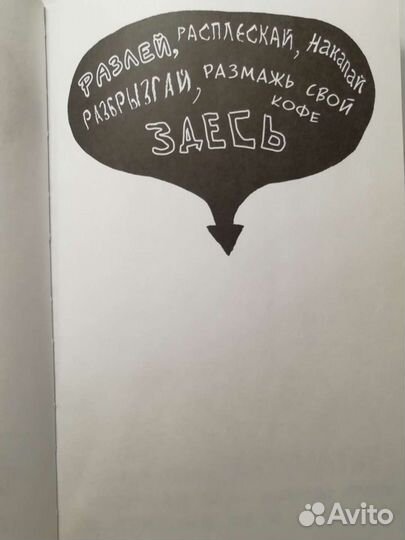 РАЗЛЕЙ, РАСПЛЕСКАЙ, НАКАПАЙ
РАЗБРЫЗГАЙ, РАЗМАЖЬ СВОЙ
КОФЕ
ЗДЕСЬ
Avito